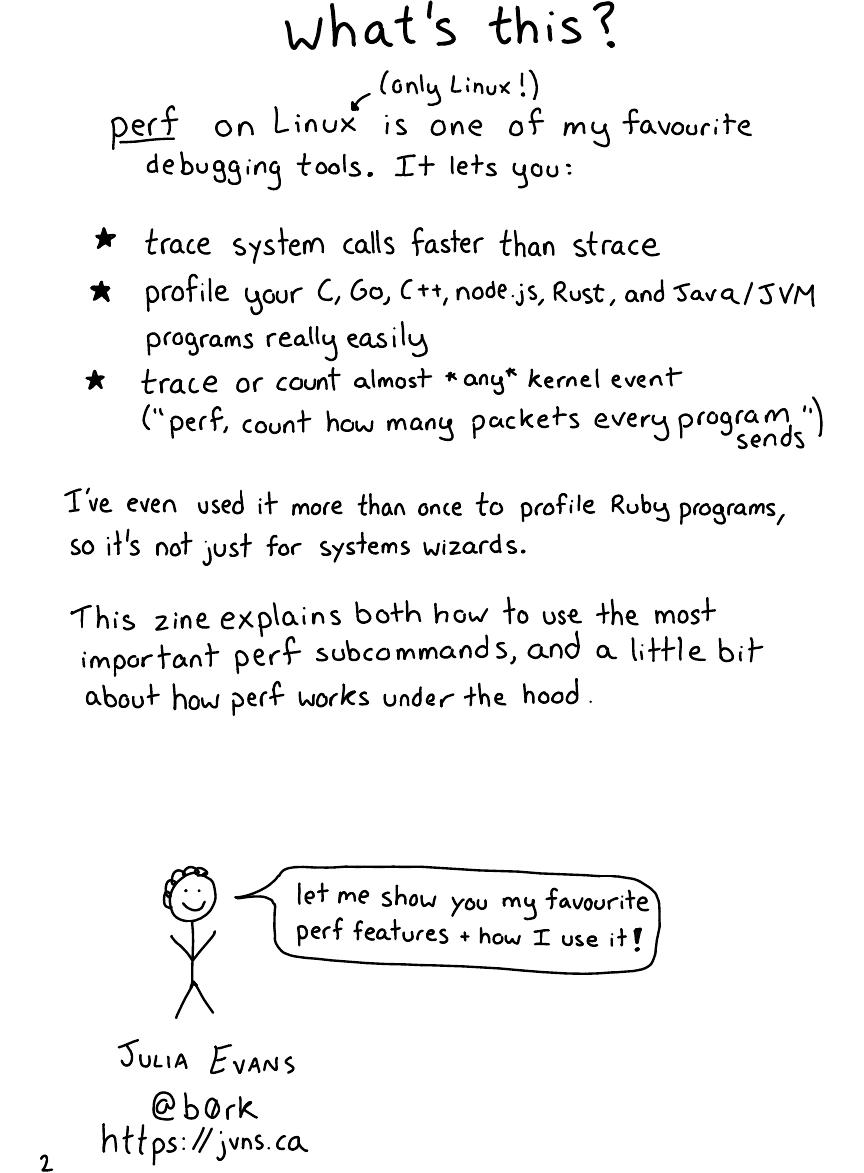 what's this?
(only Linux!)
perf on Linux is one of my favourite
debugging tools. It lets you:
★ trace system calls faster than strace
★ profile your C, Go, C++, node.js, Rust, and Java/JVM
programs really easily
★ trace or count almost *any* kernel event
("perf, count how many packets every program
sends")
I've even used it more than once to profile Ruby programs,
so it's not just for systems wizards.
This zine explains both how to use the most
important perf subcommands, and a little bit
about how perf works under the hood.
let me show you my favourite
perf features + how I use it!
JULIA EVANS
@b0rk
https://jvns.ca
2